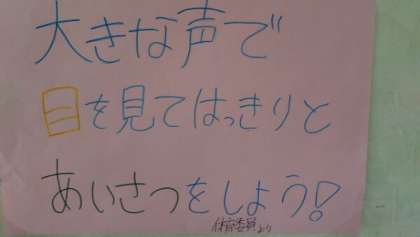 大きな声で
目を見てはっきりと
あいさつをしよう!
体育委員より